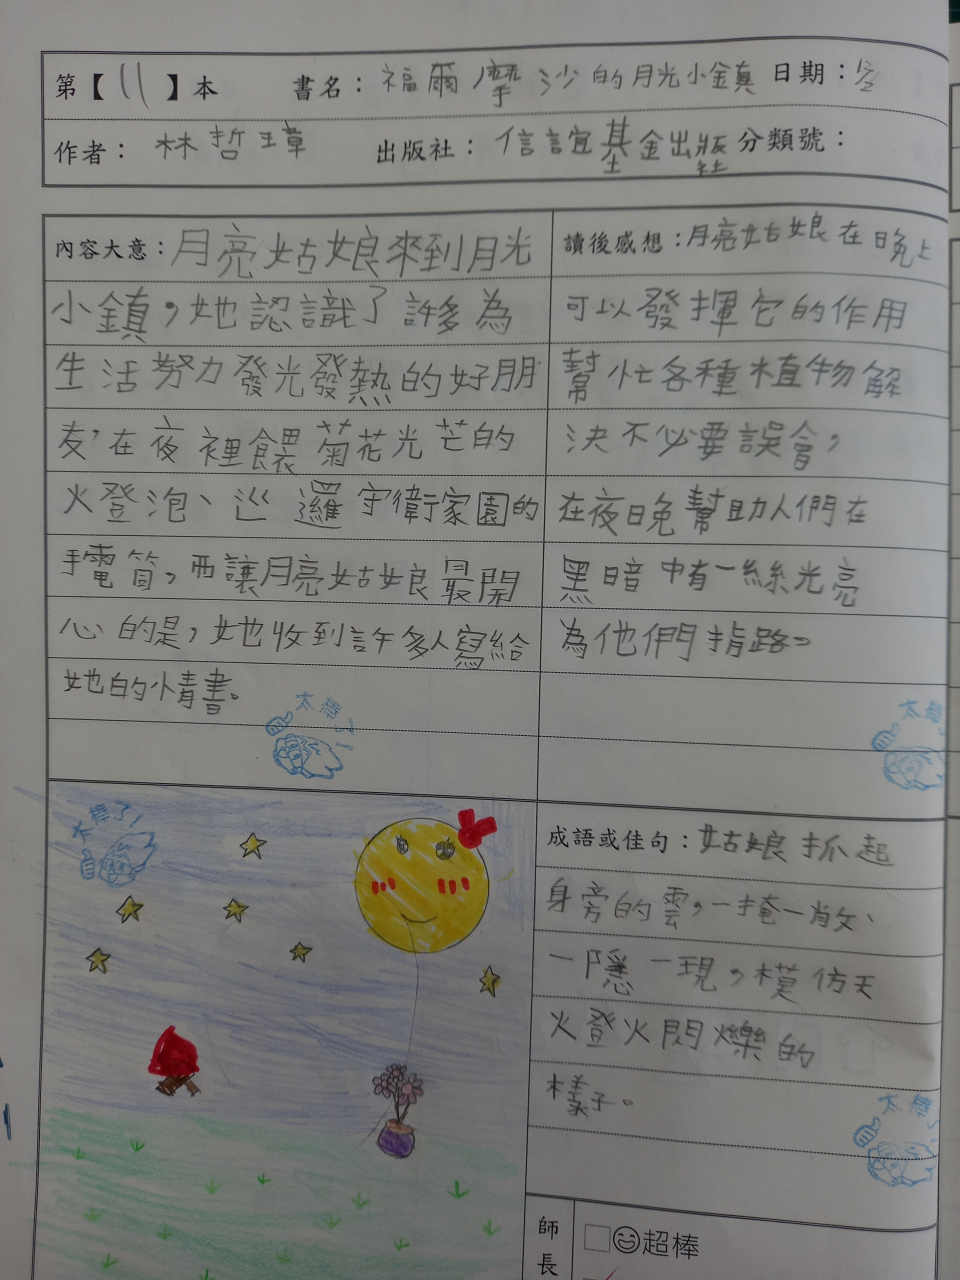 第【11】本 書名：福爾摩沙的月光小鎮 日期：
作者：林哲璋 出版社：信誼基金出版社 分類號：
內容大意：月亮姑娘來到月光
小鎮，她認識了許多為
生活努力發光發熱的好朋
友，在夜裡餵菊花光芒的
燈泡、巡邏守衛家園的
手電筒，而讓月亮姑娘最開
心的是，她收到許多人寫給
她的情書。
太棒了!
讀後感想：月亮姑娘在晚上
可以發揮它的作用
幫忙各種植物解
決不必要誤會，
在夜晚幫助人們在
黑暗中有一絲光亮
為他們指路。
太棒
太棒了!
成語或佳句：姑娘抓起
身旁的雲，一掩一放、
一隱一現，模仿天
燈閃爍的
樣子。
太棒了
師長
超棒